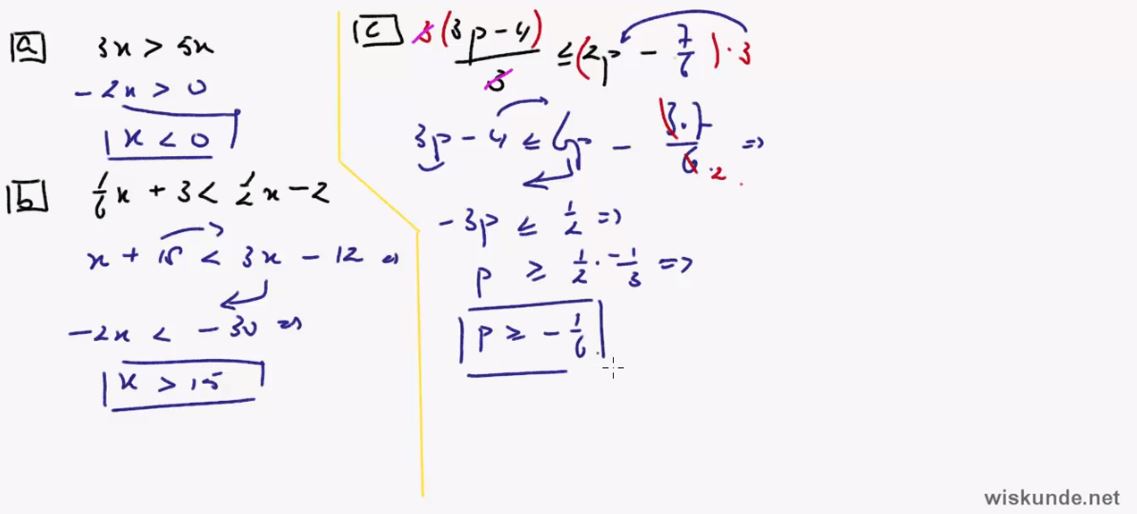 a 3x > 5x
-2x > 0
x < 0
b 1/6 x + 3 < 1/2 x - 2
x + 18 < 3x - 12 ⇒
-2x < -30 ⇒
x > 15
c 3(3p-4)/3 ≤ (2p - 7/6) · 3
3p - 4 ≤ 6p - 3·7/6 2 ⇒
-3p ≤ 1/2 ⇒
p ≥ 1/2 · -1/3 ⇒
p ≥ -1/6
wiskunde.net